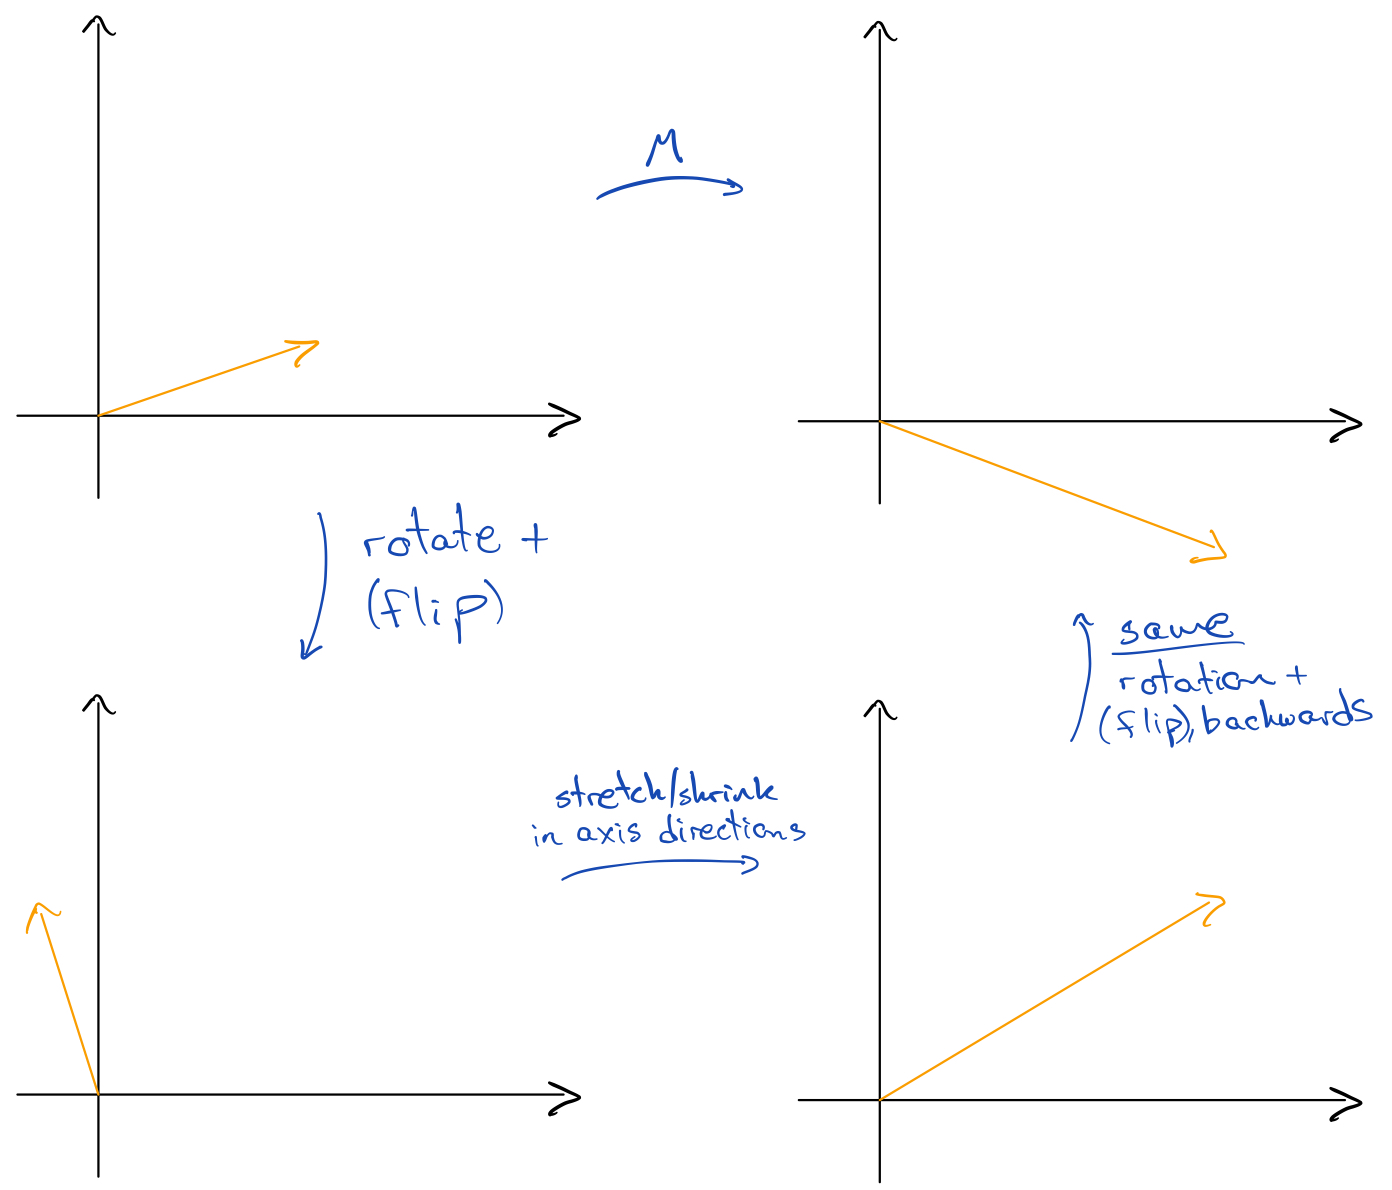 M
rotate +
(flip)
same
rotation +
(flip), backwards
stretch/shrink
in axis directions